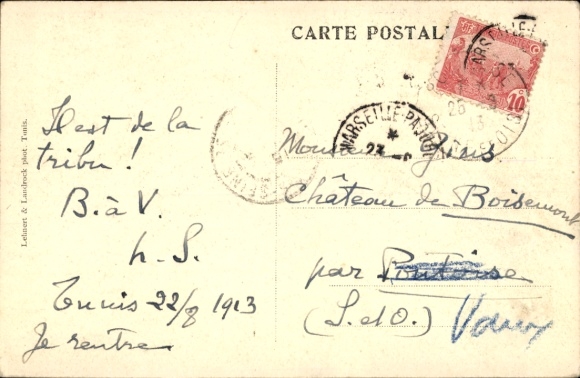 CARTE POSTALE
Lehnert & Landrock phot. Tunis.
Il est de la
tribu !
B. à V.
h. S.
Tunis 22/8 1913
Je rentre
Monsieur
Château de Boisemont
par Pontoise
(S. et O.)
MARSEILLE
MARSEILLE
23
26
13
10